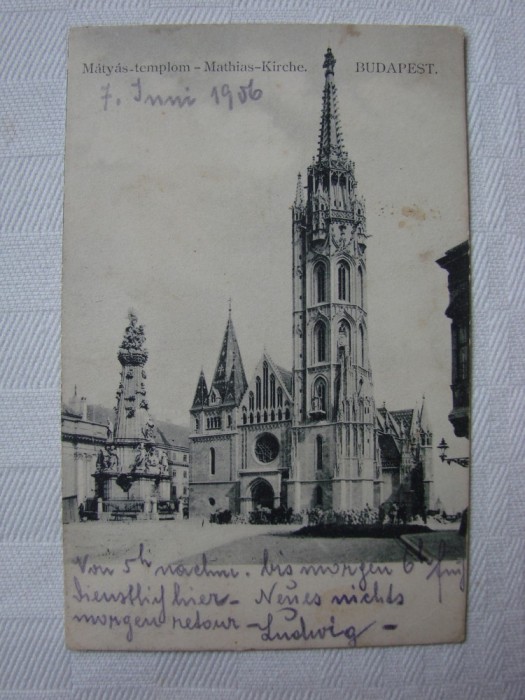 Mátyás-templom – Mathias-Kirche. BUDAPEST.
7. Juni 1906
Von 5h nachm. bis morgen 6h früh
dienstlich hier – Neues nichts
morgen retour – Ludwig –